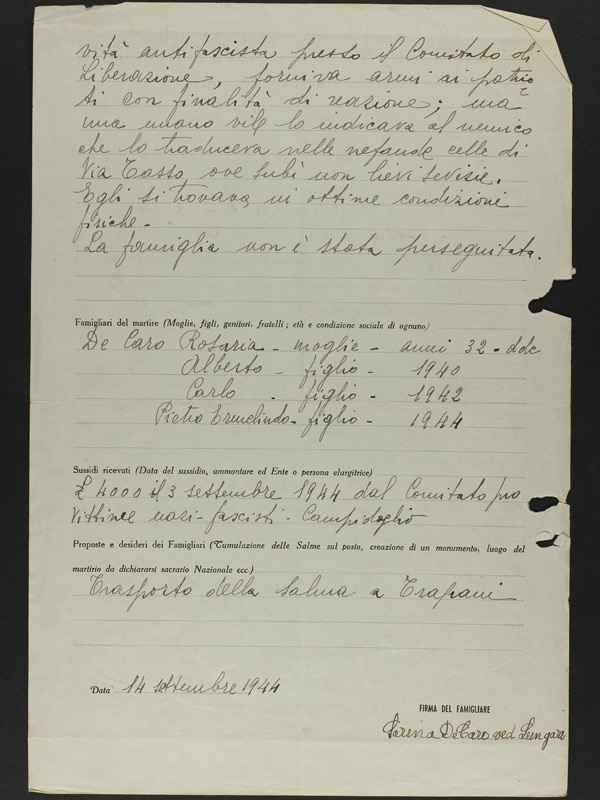 vità antifascista presso il Comitato di
Liberazione, forniva armi ai patrio
ti con finalità di reazione; ma
una mano vile lo indicava al nemico
che lo traduceva nelle nefande celle di
Via Tasso, ove subì non lievi sevizie.
Egli si trovava in ottime condizione
fisiche -
La famiglia non è stata perseguitata.
Famigliari del martire (Moglie, figli, genitori, fratelli ; età e condizione sociale di ognuno)
De Caro Rosaria - moglie - anni 32 -
Alberto - figlio - 1940
Carlo - figlio - 1942
Pietro Ermelindo - figlio - 1944
Sussidi ricevuti (Data del sussidio, ammontare ed Ente o persona elargitrice)
£ 4000 il 3 settembre 1944 dal Comitato pro
Vittime nazi-fascisti - Campidoglio
Proposte e desideri dei Famigliari (Tumulazione delle Salme sul posto, creazione di un monumento, luogo del
martirio da dichiararsi sacrario Nazionale ecc.)
Trasporto della salma a Trapani
Data 14 settembre 1944
FIRMA DEL FAMIGLIARE
De Caro ved Lungaro